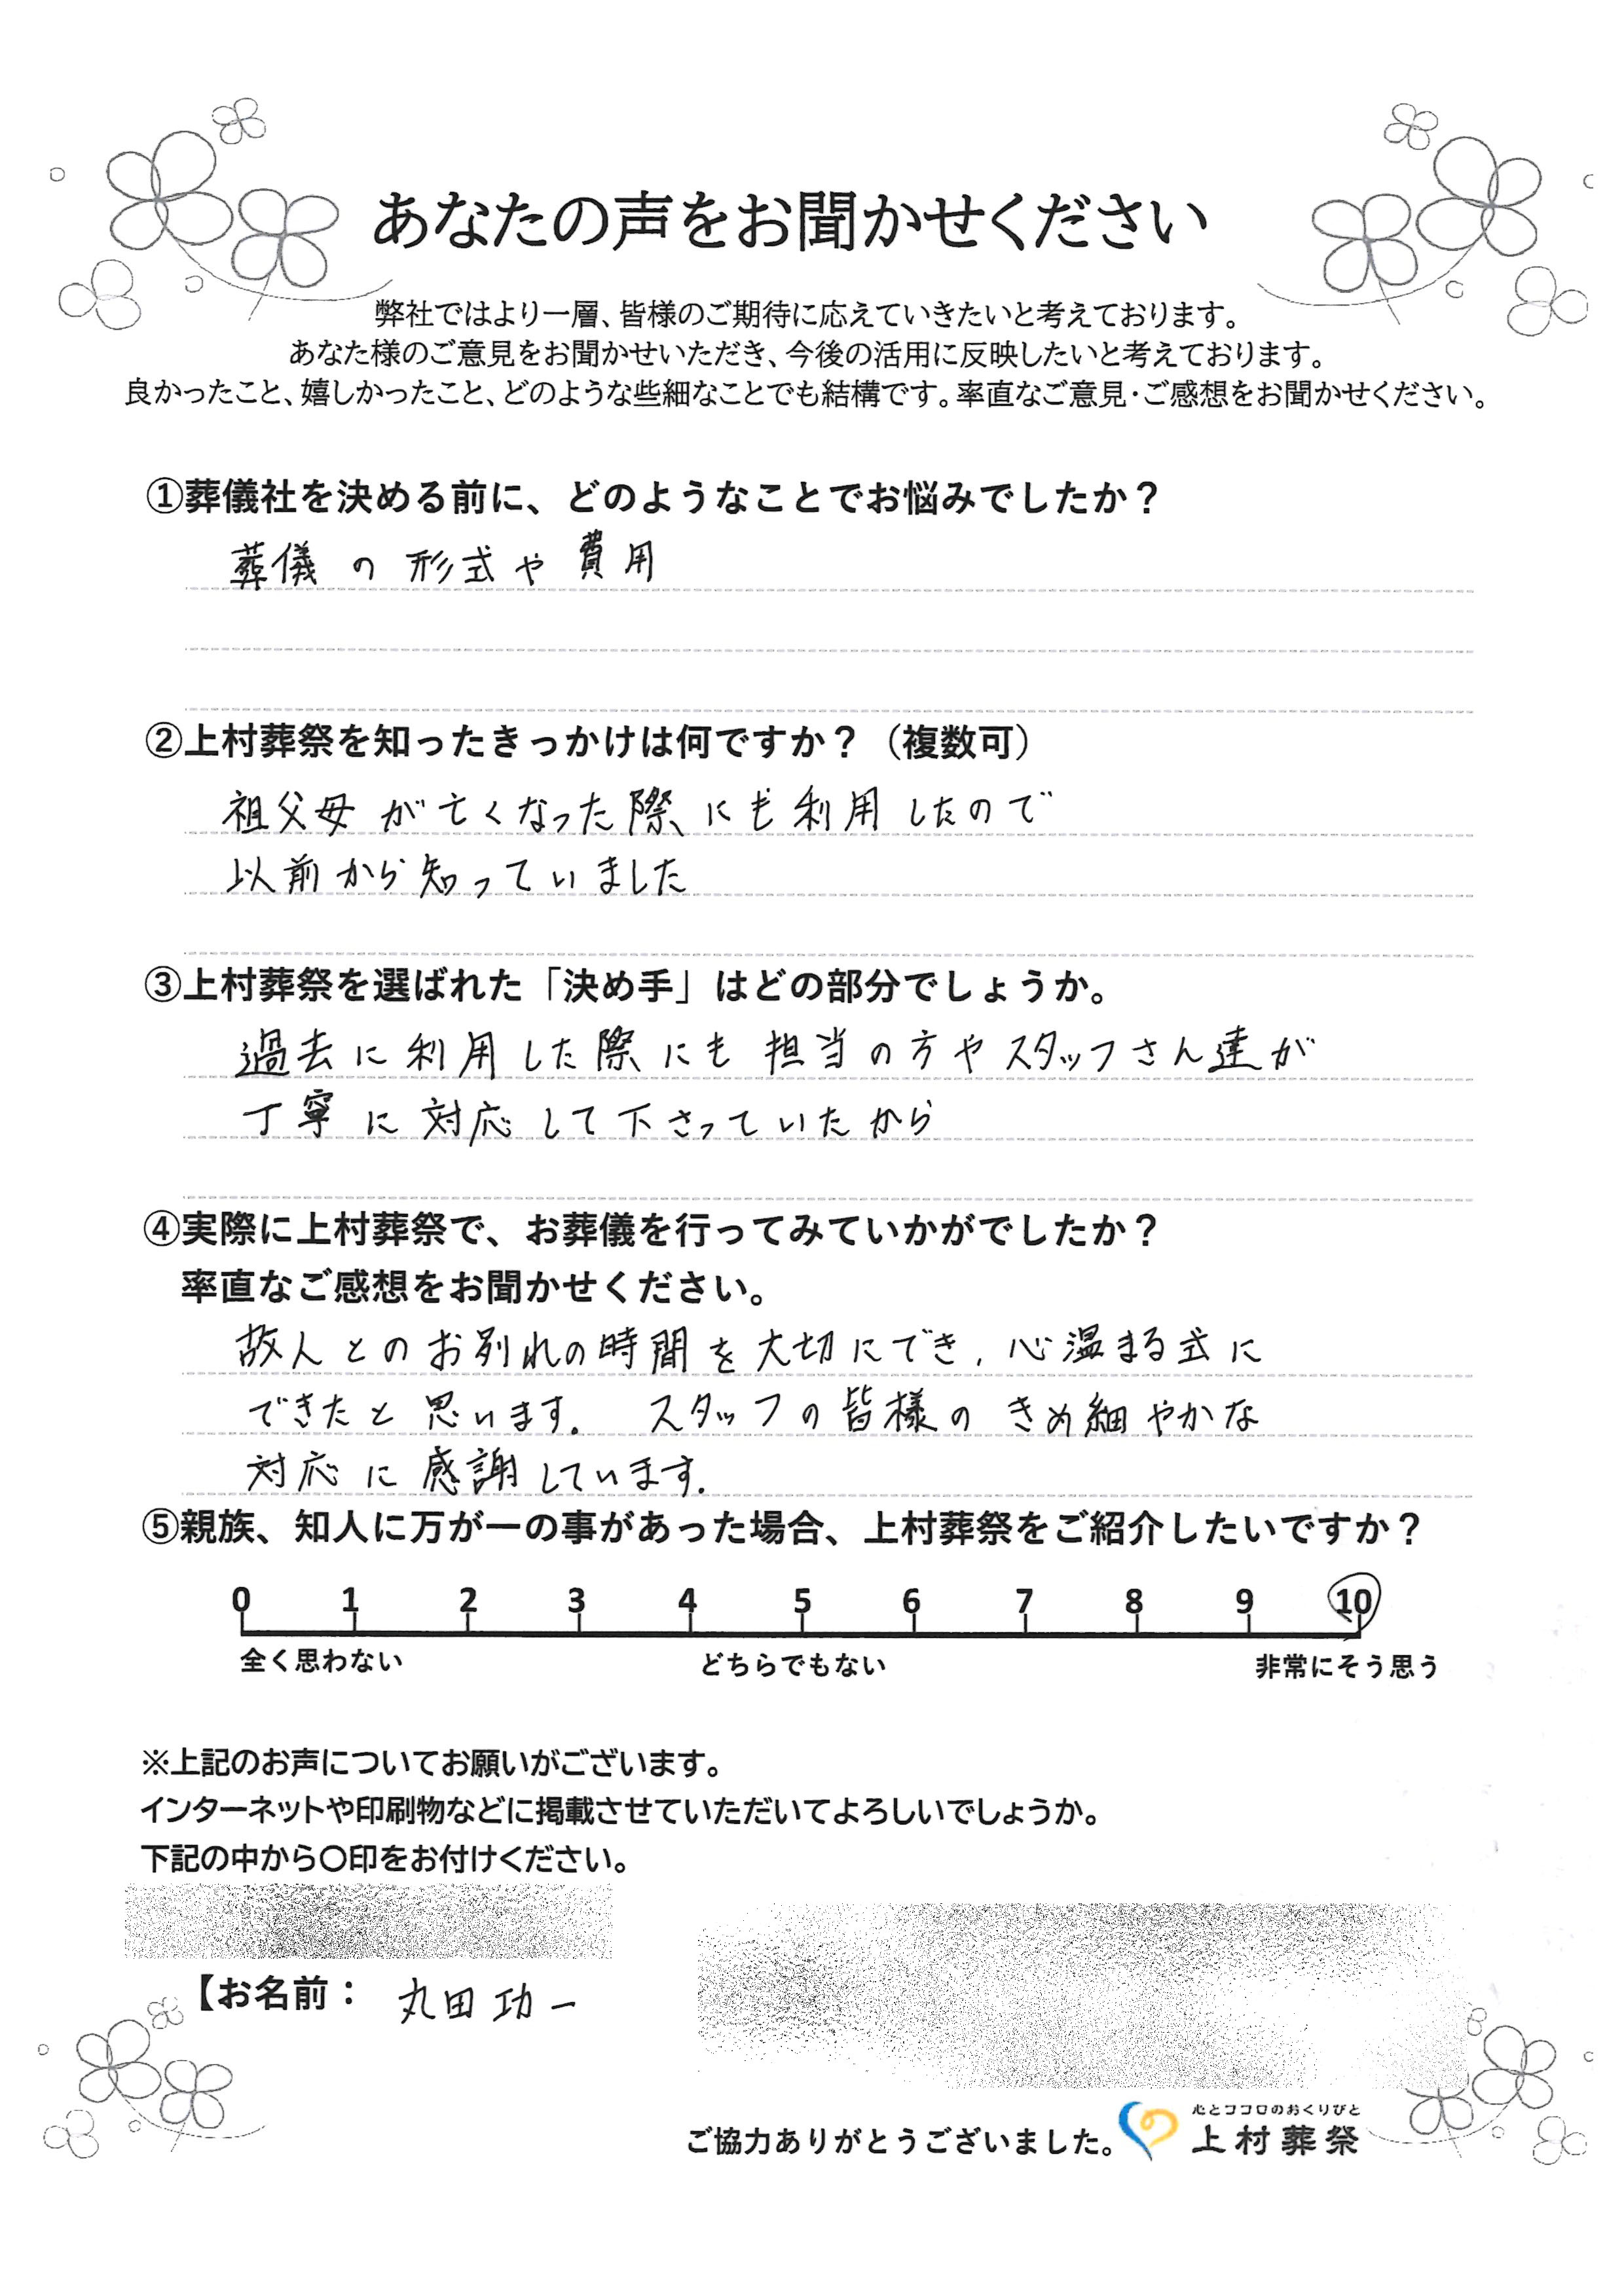 あなたの声をお聞かせください
弊社ではより一層、皆様のご期待に応えていきたいと考えております。
あなた様のご意見をお聞かせいただき、今後の活用に反映したいと考えております。
良かったこと、嬉しかったこと、どのような些細なことでも結構です。率直なご意見・ご感想をお聞かせください。
①葬儀社を決める前に、どのようなことでお悩みでしたか？
葬儀の形式や費用
②上村葬祭を知ったきっかけは何ですか？（複数可）
祖父母が亡くなった際にも利用したので
以前から知っていました
③上村葬祭を選ばれた「決め手」はどの部分でしょうか。
過去に利用した際にも担当の方やスタッフさん達が
丁寧に対応して下さっていたから
④実際に上村葬祭で、お葬儀を行ってみていかがでしたか？
率直なご感想をお聞かせください。
故人とのお別れの時間を大切にでき、心温まる式に
できたと思います。 スタッフの皆様のきめ細やかな
対応に感謝しています。
⑤親族、知人に万が一の事があった場合、上村葬祭をご紹介したいですか？
0 1 2 3 4 5 6 7 8 9 10
全く思わない どちらでもない 非常にそう思う
※上記のお声についてお願いがございます。
インターネットや印刷物などに掲載させていただいてよろしいでしょうか。
下記の中から〇印をお付けください。
【お名前： 丸田功一
心とココロのおくりびと
ご協力ありがとうございました。 上村葬祭